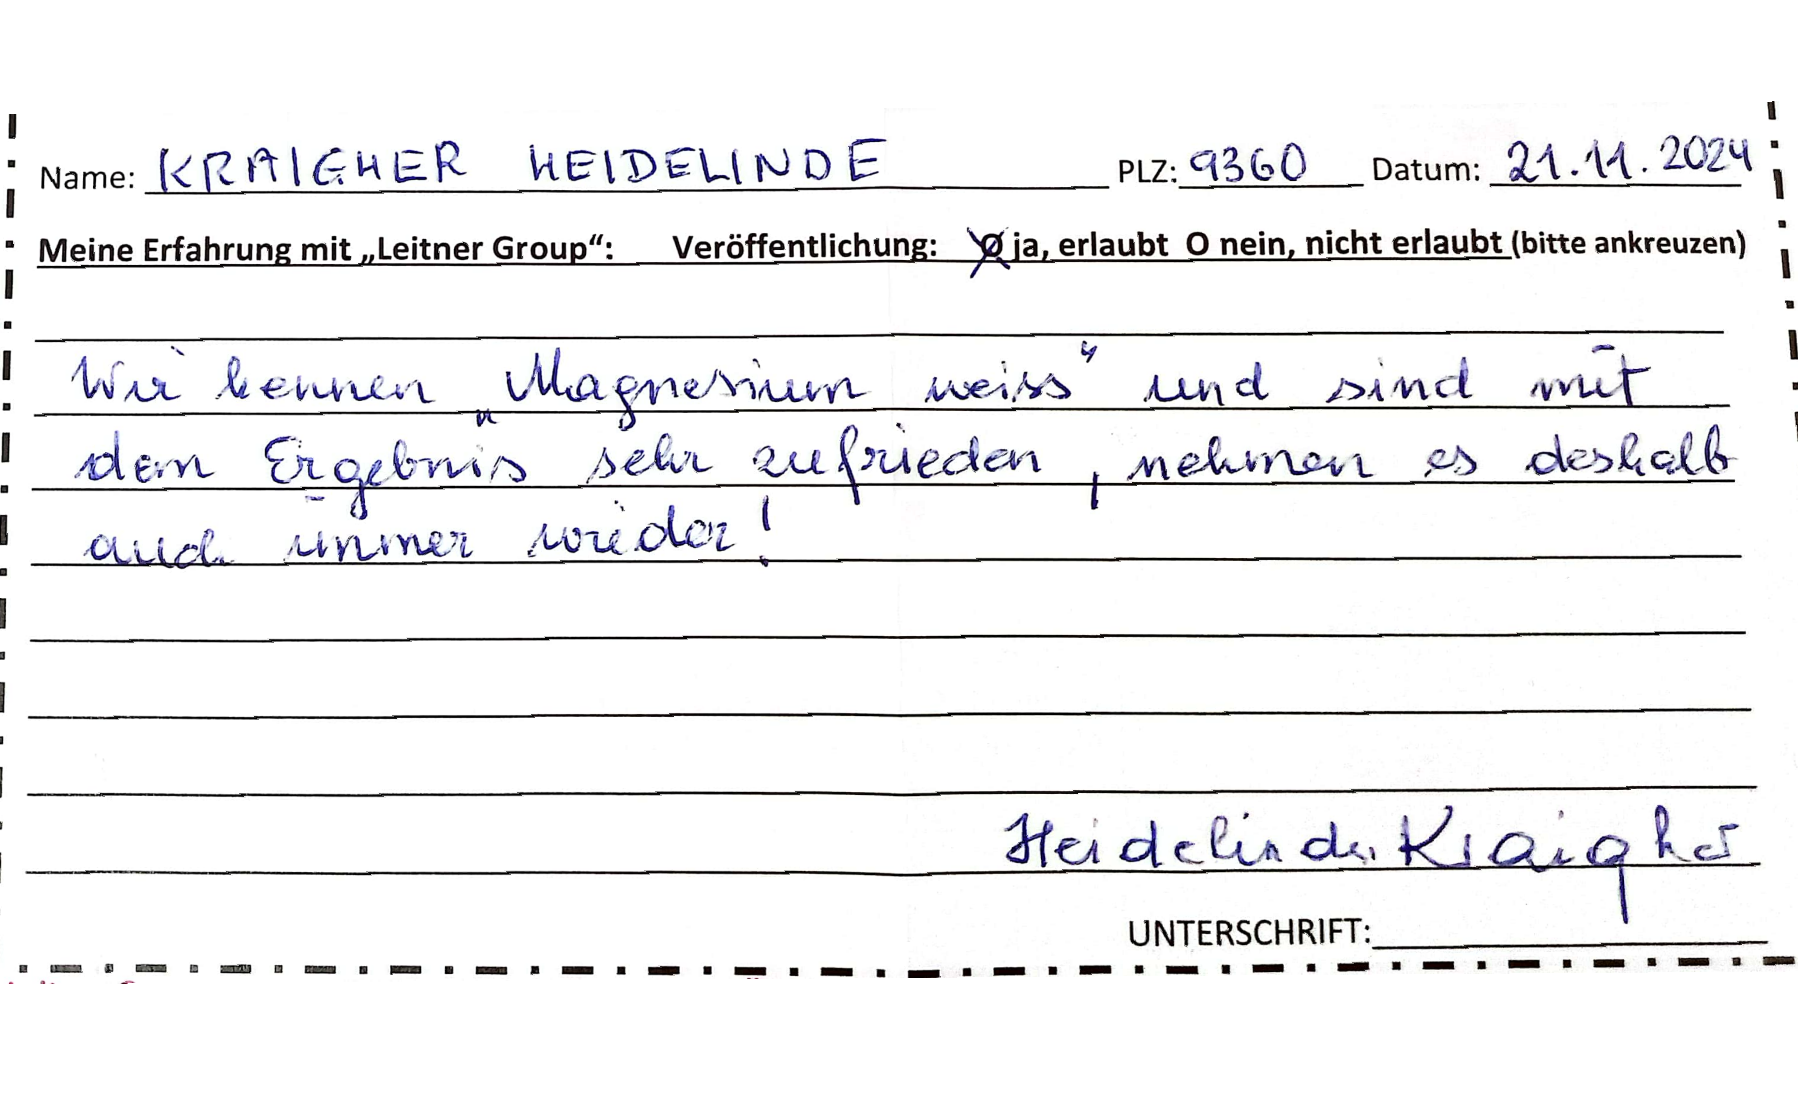 Name: KRAIGHER HEIDELINDE PLZ: 9360 Datum: 21.11.2024
Meine Erfahrung mit „Leitner Group“: Veröffentlichung: O ja, erlaubt O nein, nicht erlaubt (bitte ankreuzen)
Wir kennen „Magnesium weiss“ und sind mit
dem Ergebnis sehr zufrieden, nehmen es deshalb
auch immer wieder!
Heidelinde Kraigher
UNTERSCHRIFT: